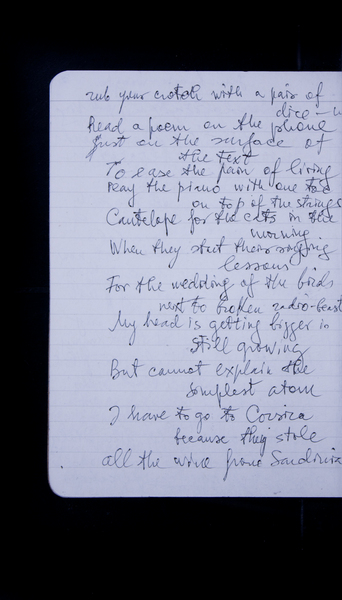 rub your crotch with a pair of
dice -
Read a poem on the phone
Just on the surface of
the text
To ease the pain of living
Play the piano with one toe
on top of the strings
Cantelope for the cats in the
morning
When they start their singing
lessons
For the wedding of the birds
next to broken radio-beat
My head is getting bigger is
still growing
But cannot explain the
simplest atom
I have to go to Corsica
because they stole
all the wine from Sardinia